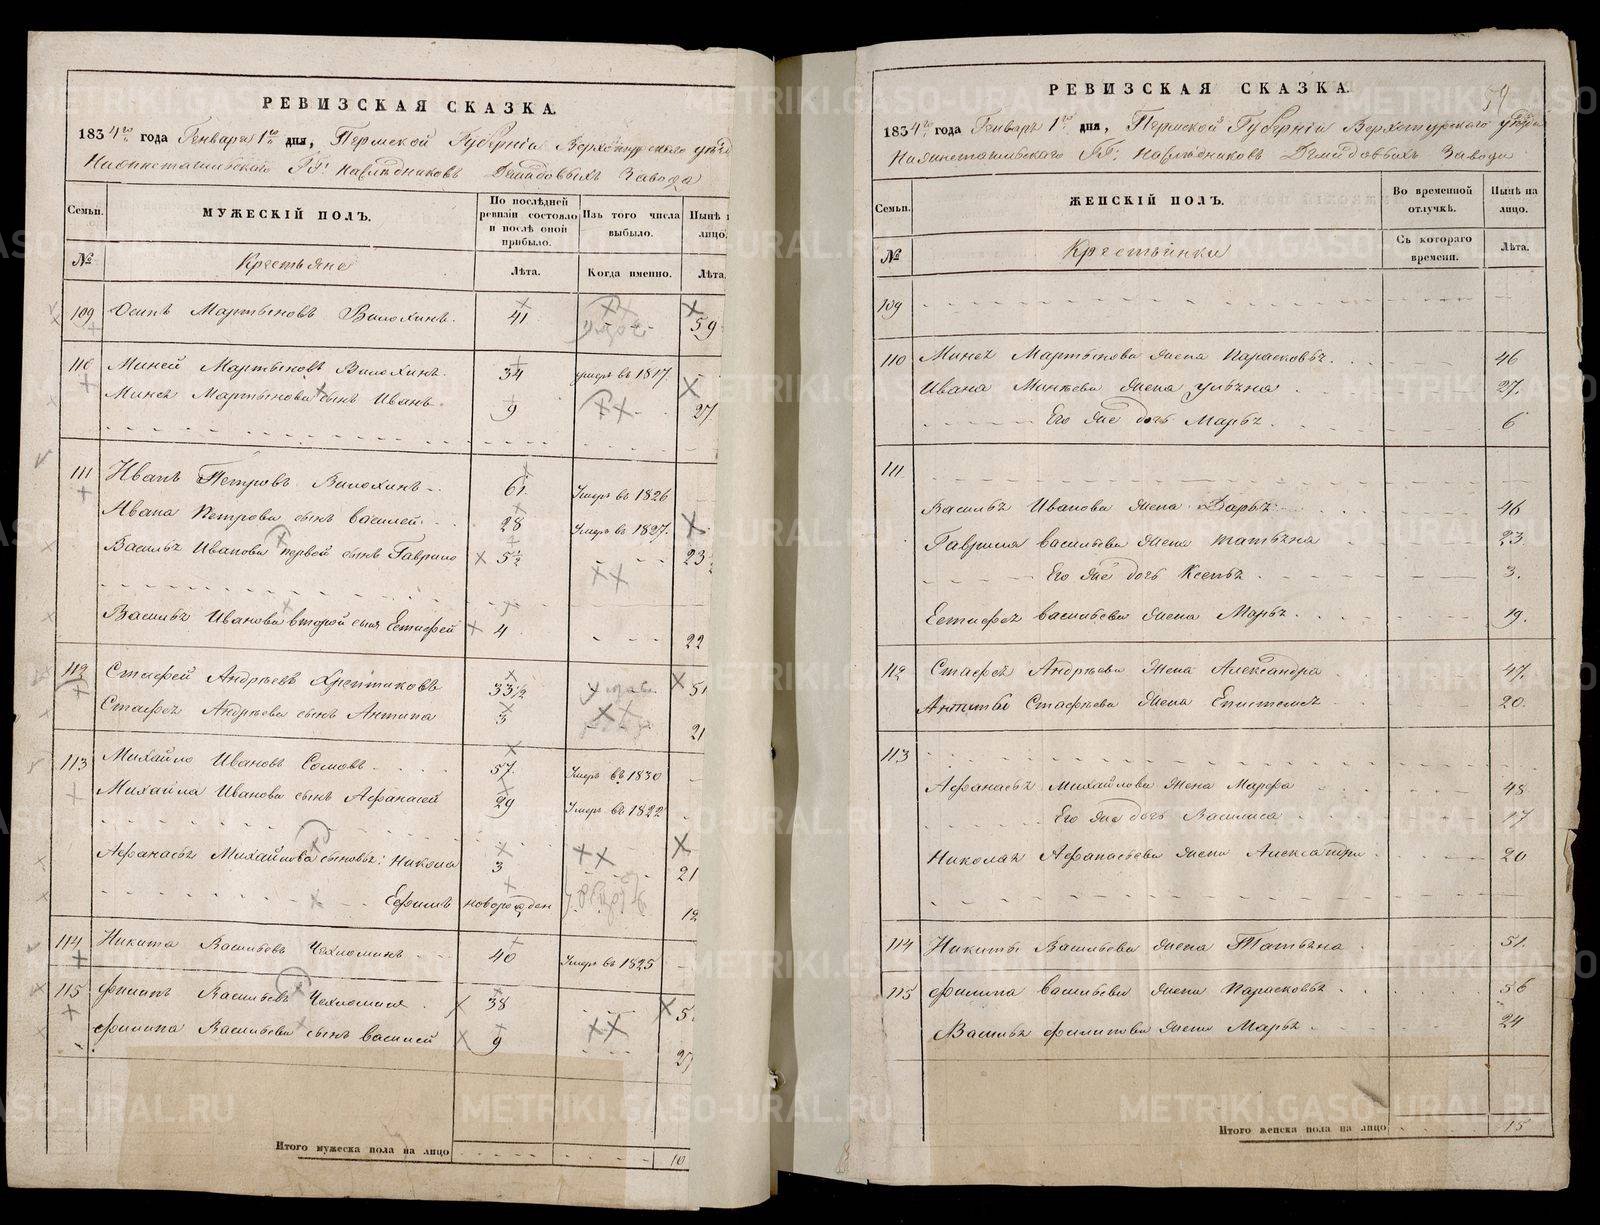 РЕВИЗСКАЯ СКАЗКА.
1834го года Генваря 1го дня, Пермской Губерніи Верхотурскаго уѣзда
Нижнетагильскаго ГГ: Наслѣдниковъ Демидовыхъ Завода
Семьи. МУЖЕСКІЙ ПОЛЪ. По послѣдней ревизіи состояло и послѣ оной прибыло. Изъ того числа выбыло. Нынѣ на лицо.
№ Крестьяне Лѣта. Когда именно. Лѣта.
109 Осипъ Мартыновъ Вилохинъ. 41 59
110 Миней Мартыновъ Вилохинъ. 34 умеръ въ 1817.
Минея Мартынова сынъ Иванъ. 9 27
111 Иванъ Петровъ Вилохинъ 61 Умеръ въ 1826
Ивана Петрова сынъ Василей. 28 Умеръ въ 1827.
Василья Иванова первой сынъ Гаврило 5½ 23
Василья Иванова второй сынъ Естифей 4 22
112 Стафей Андрѣевъ 33½ 51
Стафея Андрѣева сынъ Антипа 3 21
113 Михайло Ивановъ Сомовъ 57. Умеръ въ 1830
Михайла Иванова сынъ Афанасей 29 Умеръ въ 1822
Афанасья Михайлова сыновья: Никола 3 21
Ефимъ новорожден 12
114 Никита Васильевъ Чехломинъ 40 Умеръ въ 1825
115 Филипъ Васильевъ Чехломинъ. 38
Филипа Васильева сынъ Василей 9 27
Итого мужеска пола на лицо 10
РЕВИЗСКАЯ СКАЗКА.
59
1834го года Генваря 1го дня, Пермской Губерніи Верхотурскаго уѣзда
Нижнетагильскаго ГГ: Наслѣдниковъ Демидовыхъ Завода
Семьи. ЖЕНСКІЙ ПОЛЪ. Во временной отлучкѣ. Нынѣ на лицо.
№ Крестьянки Съ котораго времени. Лѣта.
109
110 Минея Мартынова жена Парасковья. 46
Ивана Минѣева жена Ульяна 27.
Его же дочь Марья. 6
111
Василья Иванова жена Дарья 46
Гаврила Васильева жена Татьяна 23
Его же дочь Ксенья 3.
Естифея Васильева жена Марья. 19.
112 Стафея Андрѣева жена Александра 47.
Антипы Стафѣева жена Епистемея 20.
113
Афанасья Михайлова жена Марфа 48
Его же дочь Василиса 17
Николая Афанасьева жена Александра 20
114 Никиты Васильева жена Татьяна 51.
115 Филипа Васильева жена Парасковья 56
Василья Филипова жена Марья 24
Итого женска пола на лицо 15
METRIKI.GASO-URAL.RU